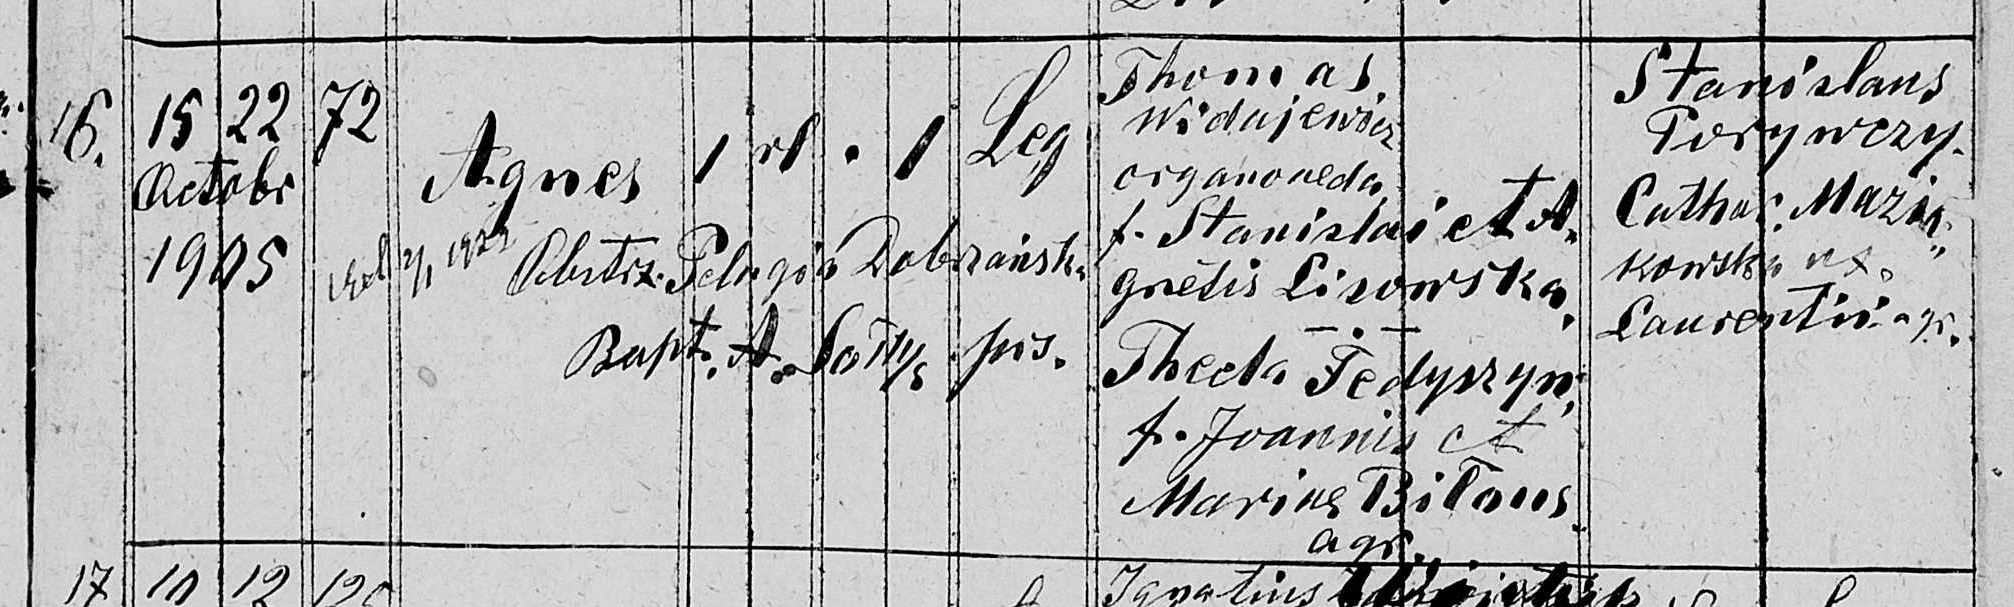 16. 15 22 72
Octobr
1905
Agnes 1 rl . 1 Leg
2/1 1922 Obstrz. Pelagia Dobrzańska
Bapt. A. Sołtys
Thomas
Widajewicz
f. Stanislai et A-
gnetis Lisowska,
Thecla Fedyszyn,
f. Joannis et
Mariae Biłous
agr.
Stanislaus
Porywczy.
Cathar. Mazia-
kowska ux.
Laurentii agr.
17 10 12 120
Ignatius